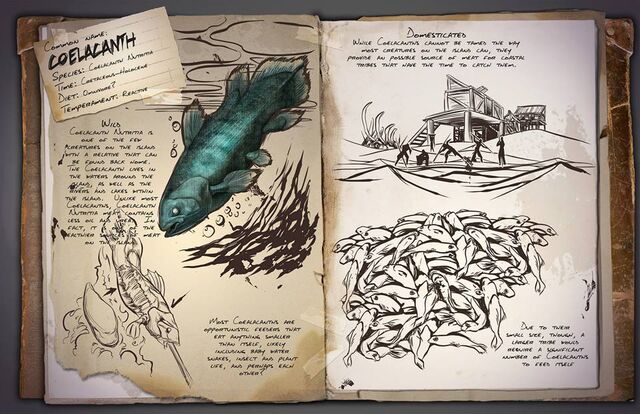 Common name:
Coelacanth
Species: Coelacanth Nutritia
Time: Cretaceous-Holocene
Diet: Omnivore?
Temperament: Reactive
Wild
Coelacanth Nutritia is
one of the few
creatures on the island
with a relative that can
be found back home.
The Coelacanth lives in
the waters around the
island, as well as the
rivers and lakes within
the island. Unlike most
Coelacanths, Coelacanth
Nutritia meat contains
less oil and urea. In
fact, it is one of the
healthier sources of meat
on the island.
Most Coelacanths are
opportunistic feeders that
eat anything smaller
than itself, likely
including baby water
snakes, insect and plant
life, and perhaps each
other?
Domesticated
While Coelacanths cannot be tamed the way
most creatures on the island can, they
provide an possible source of meat for coastal
tribes that have the time to catch them.
Due to their
small size, though, a
larger tribe would
require a significant
number of Coelacanths
to feed itself